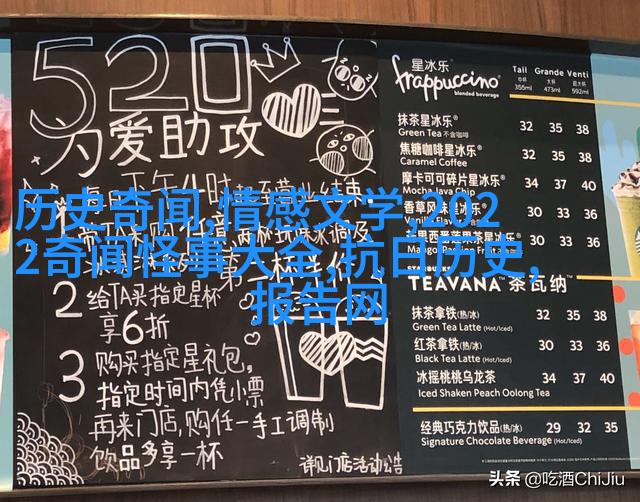 520
为爱助攻
历史奇闻,情感文学,202
2奇闻怪事大全,抗日历史,
报告网
2 给TA买指定星杯
享6折
3 购买指定星礼包,
指定时间内凭小票
再来门店,购任一手工调制
饮品多享一杯
详见门店活动公告
星冰乐®
frappuccino®
blended beverage
Tall Grande Venti
中杯 大杯 超大杯
355ml 473ml 592ml
抹茶星冰乐® 32 35 38
Green Tea 不含咖啡
焦糖咖啡星冰乐® 32 35 38
Caramel Coffee
摩卡可可碎片星冰乐® 34 37 40
Mocha Java Chip
香草风味星冰乐® 30 33 36
30 33 36
TEAVANA™ 茶瓦纳™
抹茶拿铁(热/冰) 32 35 38
Green Tea Latte (Hot/Iced)
红茶拿铁(热/冰) 30 33 36
Black Tea Latte (Hot/Iced)
冰摇桃桃乌龙茶 34 37 40
Iced Shaken Peach Oolong Tea
经典巧克力饮品(热/冰) 29 32 35
Signature Chocolate Beverage (Hot/Iced)
头条 @吃酒ChiJiu